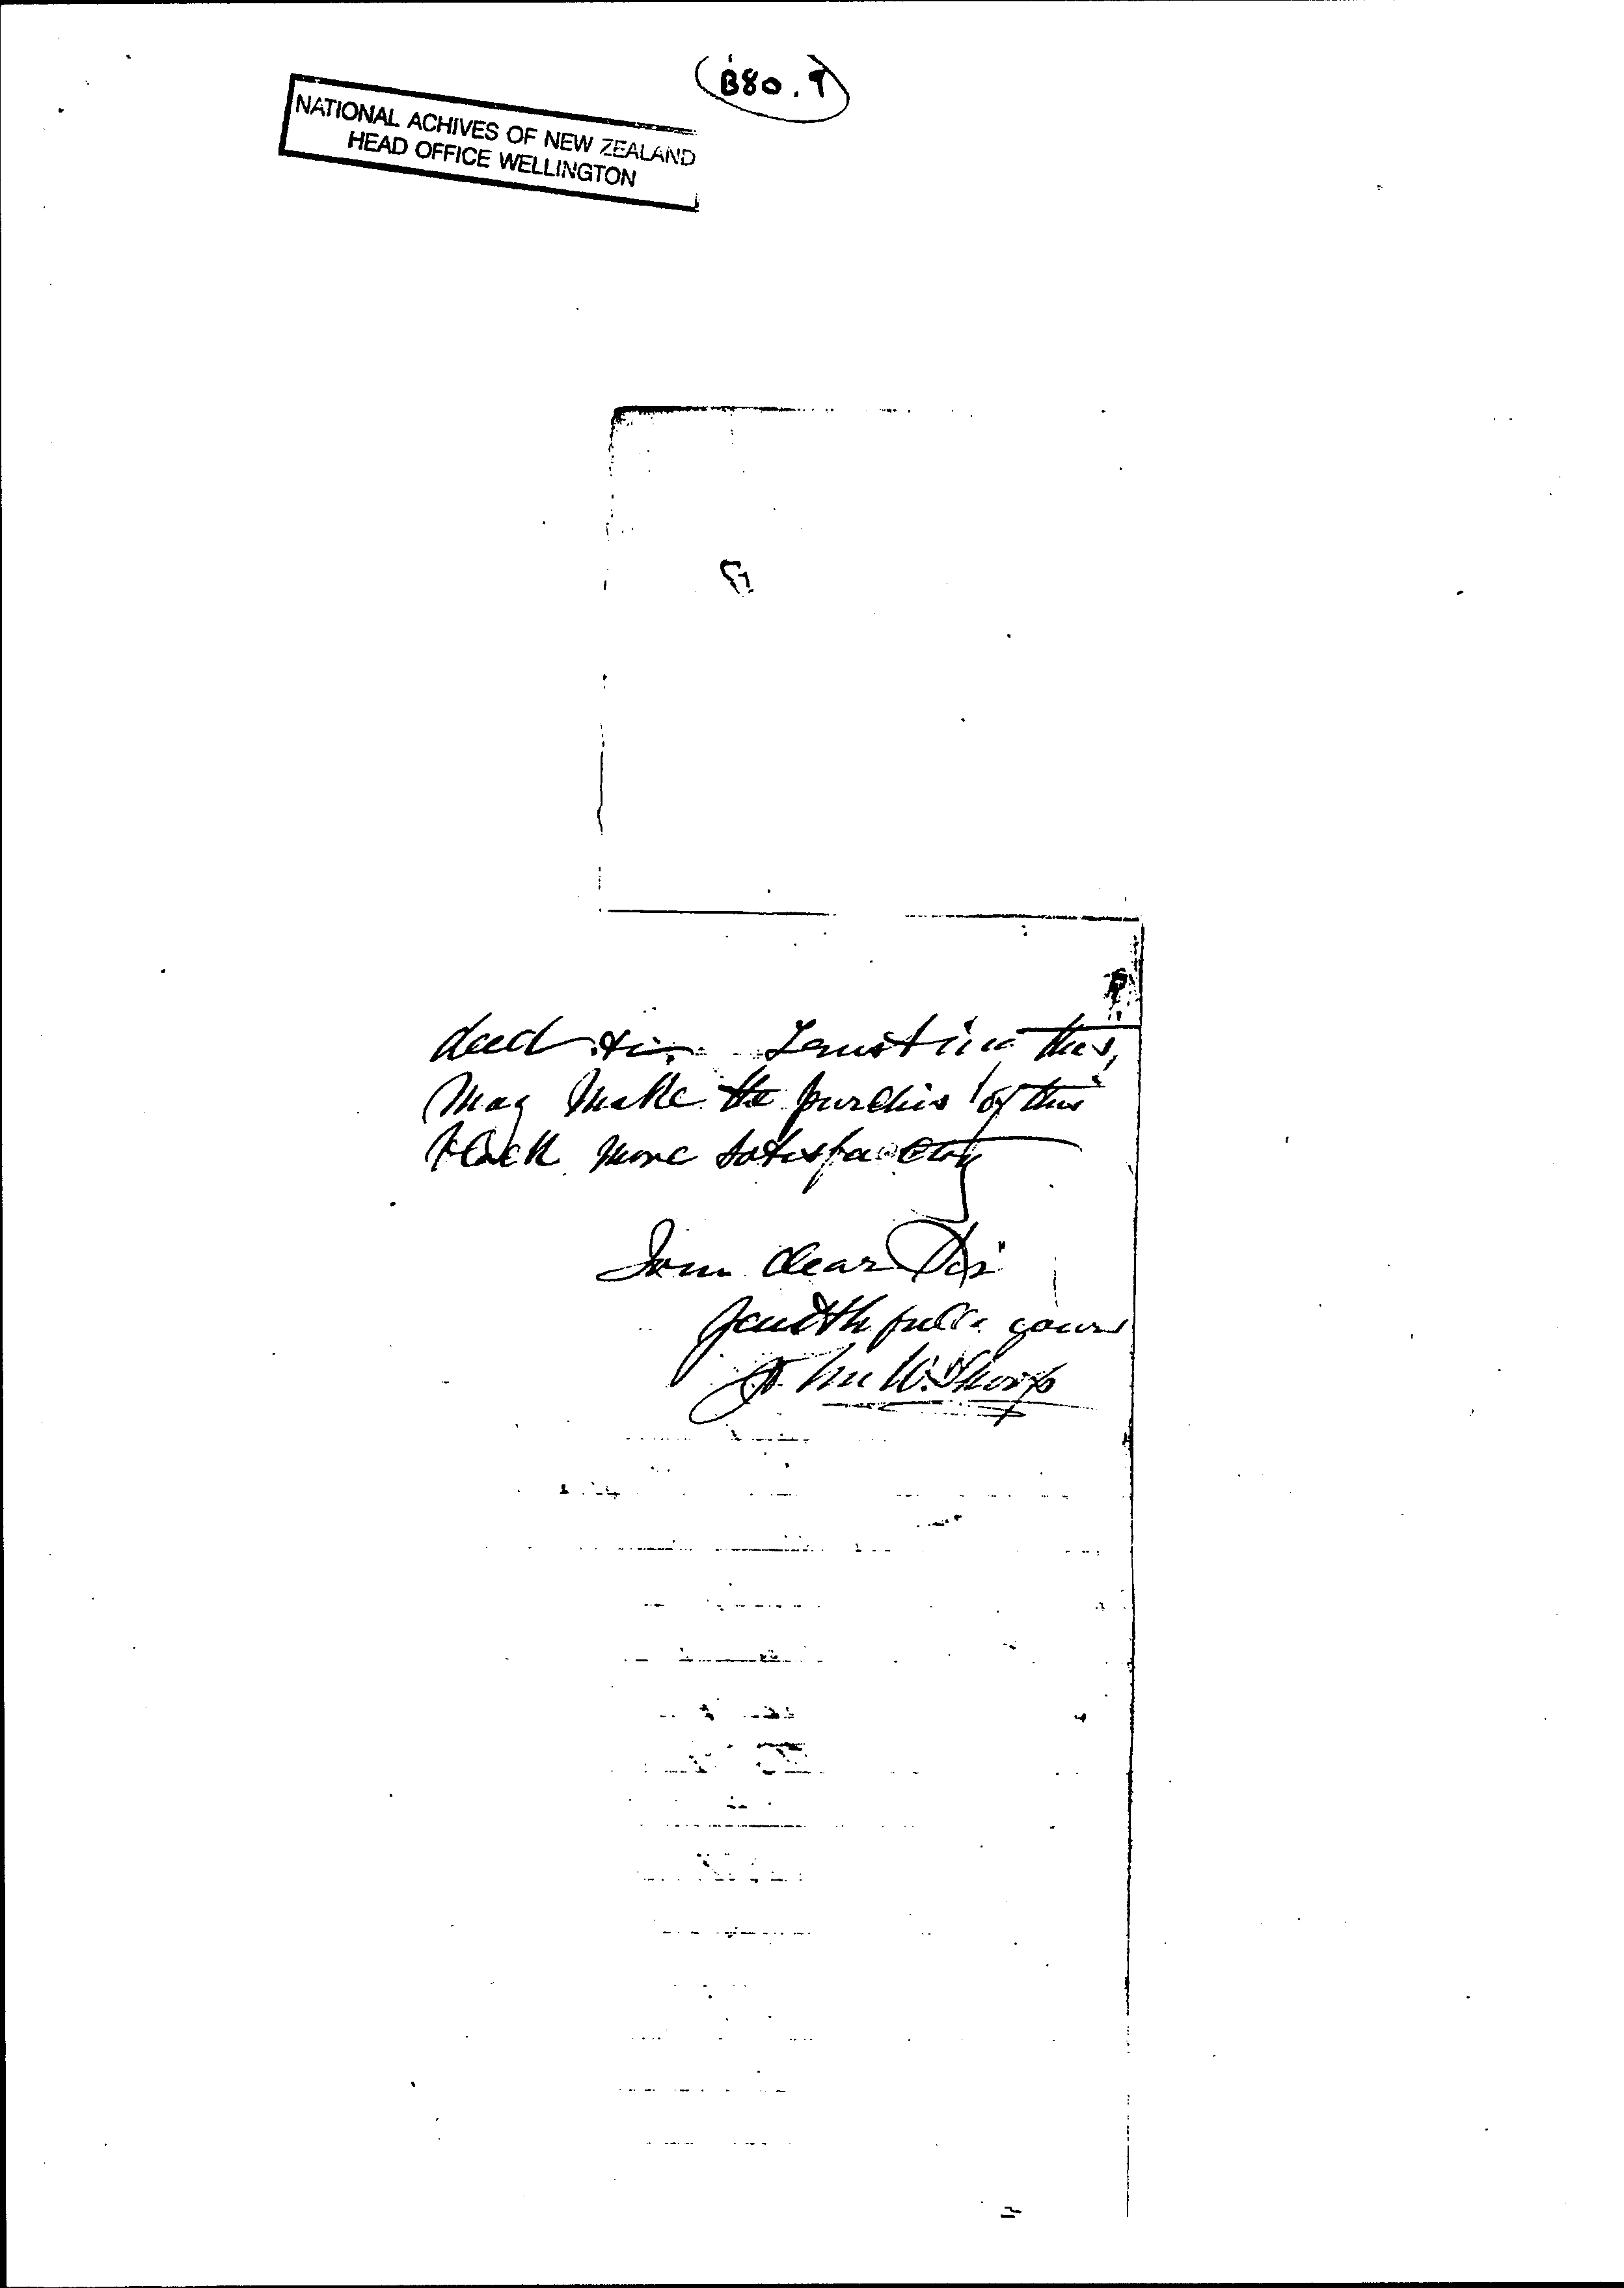 B80.9
NATIONAL ACHIVES OF NEW ZEALAND
HEAD OFFICE WELLINGTON
deed &c. Trusting this
may make the purchis of this
block more satisfactory
I am dear Sir
faithfully yours
John W. Thorp